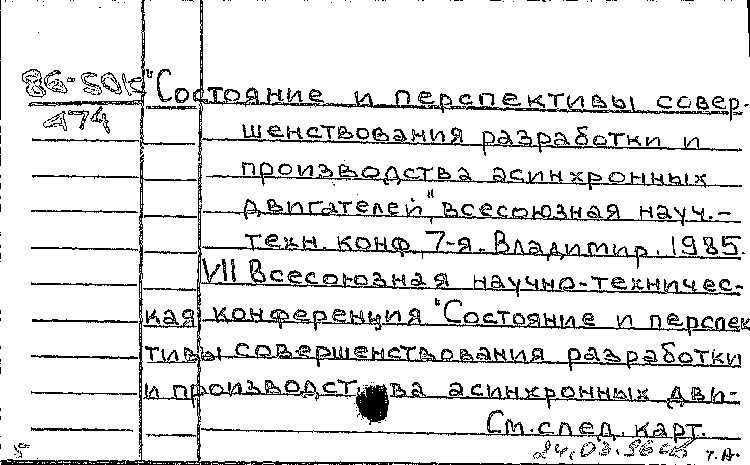 86-50к "Состояние и перспективы совер-
А74
шенствования разработки и
производства асинхронных
двигателей", всесоюзная науч.-
техн. конф. 7-я. Владимир. 1985.
VII Всесоюзная научно-техничес-
кая конференция "Состояние и перспек
тивы совершенствования разработки
и производства асинхронных дви-
См. след. карт.
24.03.86 т.А.